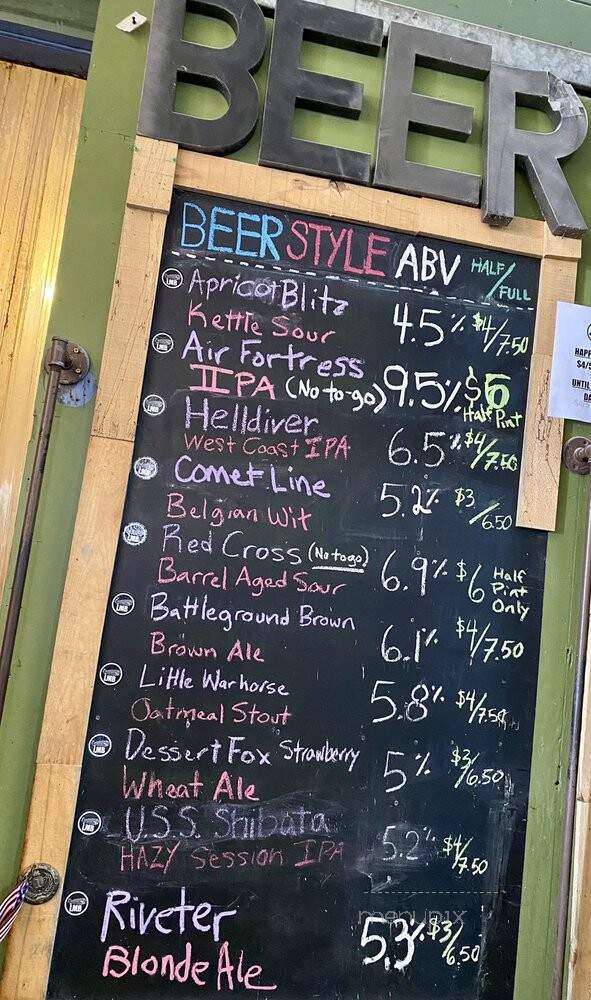 BEER
BEER STYLE ABV HALF/FULL
Apricot Blitz
Kettle Sour 4.5% $4/7.50
Air Fortress
IIPA (No to-go) 9.5% $6
Half Pint
Helldiver
West Coast IPA 6.5% $4/7.50
Comet Line
Belgian Wit 5.2% $3/6.50
Red Cross (No to go)
Barrel Aged Sour 6.9% $6 Half Pint Only
Battleground Brown
Brown Ale 6.1% $4/7.50
Little Warhorse
Oatmeal Stout 5.8% $4/7.50
Dessert Fox Strawberry
Wheat Ale 5% $3/6.50
U.S.S. Shibata
HAZY Session IPA 5.2% $4/7.50
Riveter
Blonde Ale 5.3% $3/6.50
LMB
HAPP
$4/5
UNTIL
DA
menupix